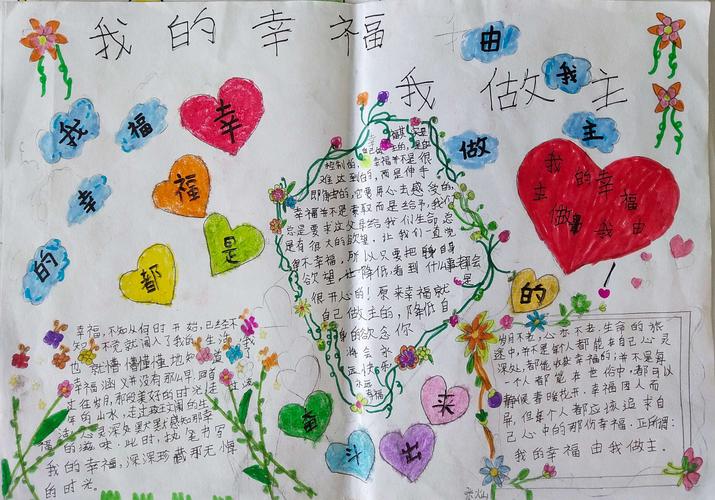 我的幸福
我做主
由
我
做
主
我
福
幸
的
幸
福
是
都
的
奋
斗
出
来
我的幸
主
福
做
我由
幸福其实是
自己做主的,是能
控制的,幸福并不是很
难达到的,而是伸手
即得的,它需用心去感受的,
幸福并不是索取而是给予,我们
总是要求这父母给我们生命总
是有很大的欲望,让我们一直觉
得不幸福,所以只要把自身
欲望也降低看到什么事都会
很开心的!原来幸福就是
自己做主的,降低自
身的欲念你
将会永
远快乐
永远
幸福
幸福,不知从何时开始,已经不
知不觉就闯入了我的生活,我
也就懵懵懂懂地知道
幸福涵义并没有那么早,踏着
过往岁月,那段美好的时光
年的山水,走过
福,活心灵深处默默感知那幸
的滋味,此时,执笔书写
我的幸福,深深珍藏那无悔
的时光。
岁月不老,心亦不老,生命的旅
途中,并不是每个人都能在自己心灵
深处,都能收获幸福的;并不是每
一个人都能在世俗中,都可以
静候春暖花开。幸福因人而
异,但每个人都应该追求自
己心中的那份幸福。正所谓:
我的幸福由我做主.